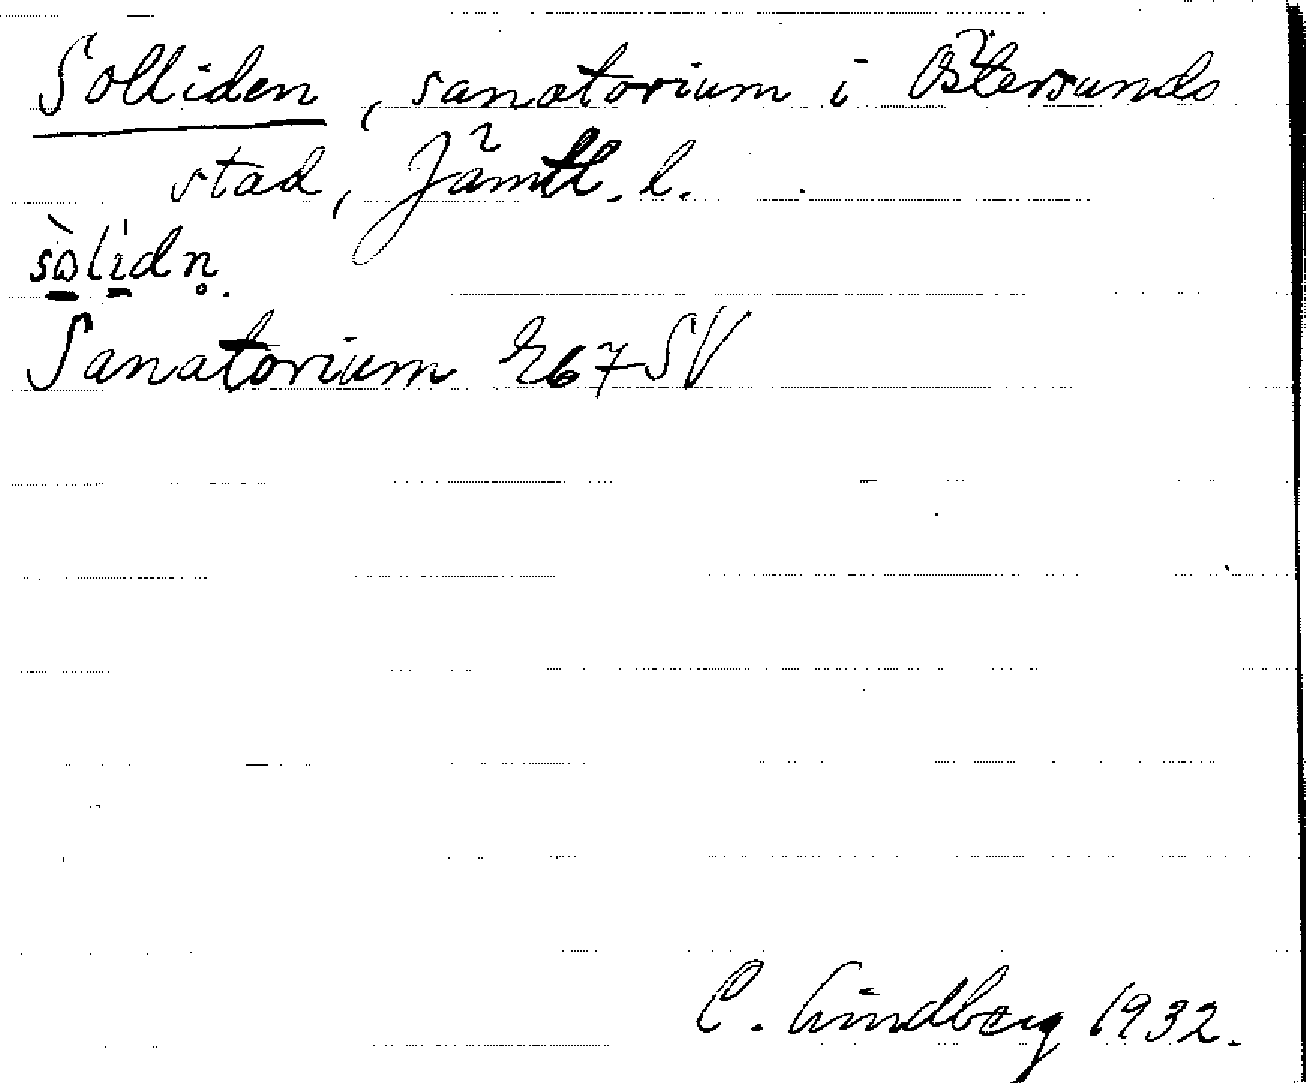 Solliden, sanatorium i Östersunds
stad, Jämtl. l.
sòlídn̥.
Sanatorium E67SV
C. Lindberg 1932.